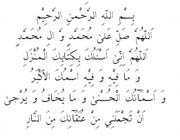 بِسْمِ اللهِ الرَّحْمٰنِ الرَّحِيْمِ
اَللّٰهُمَّ صَلِّ عَلٰى مُحَمَّدٍ وَ اٰلِ مُحَمَّدٍ
اَللّٰهُمَّ اِنِّىْ اَسْئَلُكَ بِكِتَابِكَ الْمُنْزَلِ
وَ مَا فِيْهِ وَ فِيْهِ اسْمُكَ الْاَكْبَرُ
وَ اَسْمَآئُكَ الْحُسْنٰى وَ مَا يُخَافُ وَ يُرْجٰى
اَنْ تَجْعَلَنِىْ مِنْ عُتَقَآئِكَ مِنَ النَّارِ